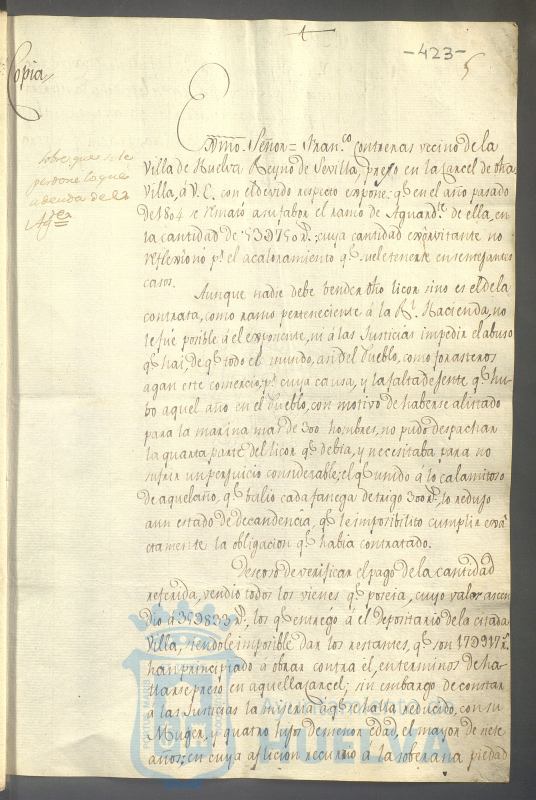 -423-
5
Copia
Sobre que se le
perdone lo que
adeuda de el
Agte
Exmo. Señor = Franco. Contreras vecino de la
Villa de Huelva Reyno de Sevilla, preso en la Carcel de dha
Villa, á V. E. con el devido respecto expone: qe. en el año pasado
de 1804 se remató a su fabor el ramo de Aguardte. de ella, en
la cantidad de 53D750 rs.; cuya cantidad exorvitante no
reflexionó pr. el acaloramiento qe. suele tenerse en semejantes
casos.
Aunque nadie debe bender dho licor sino es el de la
contrata, como ramo perteneciente á la Rl. Hacienda, no
le fue posible á el exponente, ni á las Justicias impedir el abuso
qe. hai, de qe. todo el mundo, asi del Pueblo, como forasteros
agan este comercio, pr. cuya causa, y la falta de jente qe. hu-
bo aquel año en el Pueblo, con motivo de haberse alistado
para la marina mas de 300 hombres, no pudo despachar
la quarta parte del licor qe. debia, y necesitaba para no
sufrir un perjuicio considerable; el qe. unido á lo calamitoso
de aquel año, qe. balio cada fanega de trigo 300 rs., lo redujo
a un estado de decandencia, qe. le imposibilitó cumplir exa-
ctamente la obligacion qe. habia contratado.
Deseoso de verificar el pago de la cantidad
referida, vendio todos los vienes qe. poseia, cuyo valor ascen-
dio á 35D833 rs., los qe. entregó á el Depositario de la citada
Villa, siendole imposible dar los restantes, qe. son 17D917 rs.
han principiado á obrar contra él, en terminos de ha-
llarse preso en aquella Carcel; sin embargo de constar
á las Justicias la miseria á qe. se halla reducido, con su
Muger, y quatro hijos de menor edad, el mayor de siete
años; en cuya aflicion recurrio á la soberana piedad